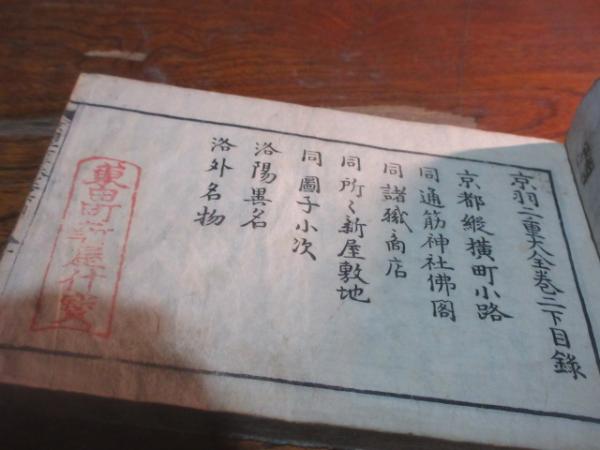 京羽二重大全巻二下目録
京都縦横町小路
同通筋神社佛閣
同諸職商店
同所〱新屋敷地
同圖子小次
洛陽異名
洛外名物
東田町